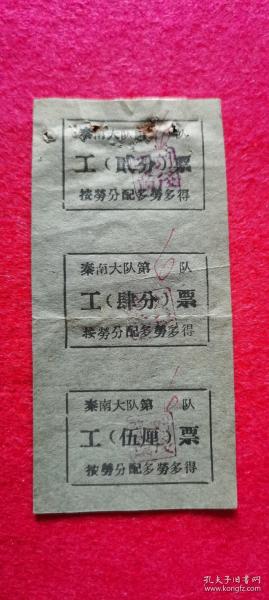 秦南大队第 队
工（贰分）票
按劳分配多劳多得
秦南大队第6队
工（肆分）票
按劳分配多劳多得
秦南大队第6队
工（伍厘）票
按劳分配多劳多得
孔夫子旧书网
www.kongfz.com